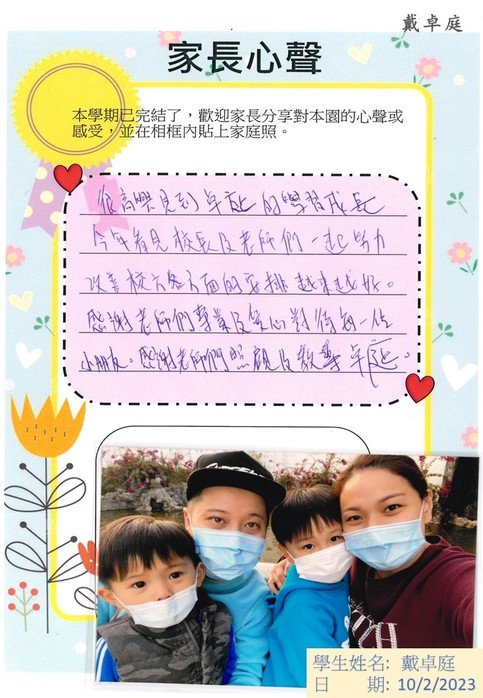 戴卓庭
家長心聲
本學期已完結了，歡迎家長分享對本園的心聲或
感受，並在相框內貼上家庭照。
很高興見到卓庭的學習成長
今年看見校長及老師們一起努力
改善校方各方面的安排越來越好。
感謝老師們專業及愛心對待每一位
小朋友。感謝老師們照顧及教導卓庭。
學生姓名: 戴卓庭
日 期: 10/2/2023